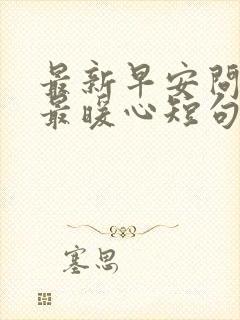 最新早安问
最暖心短句
塞思